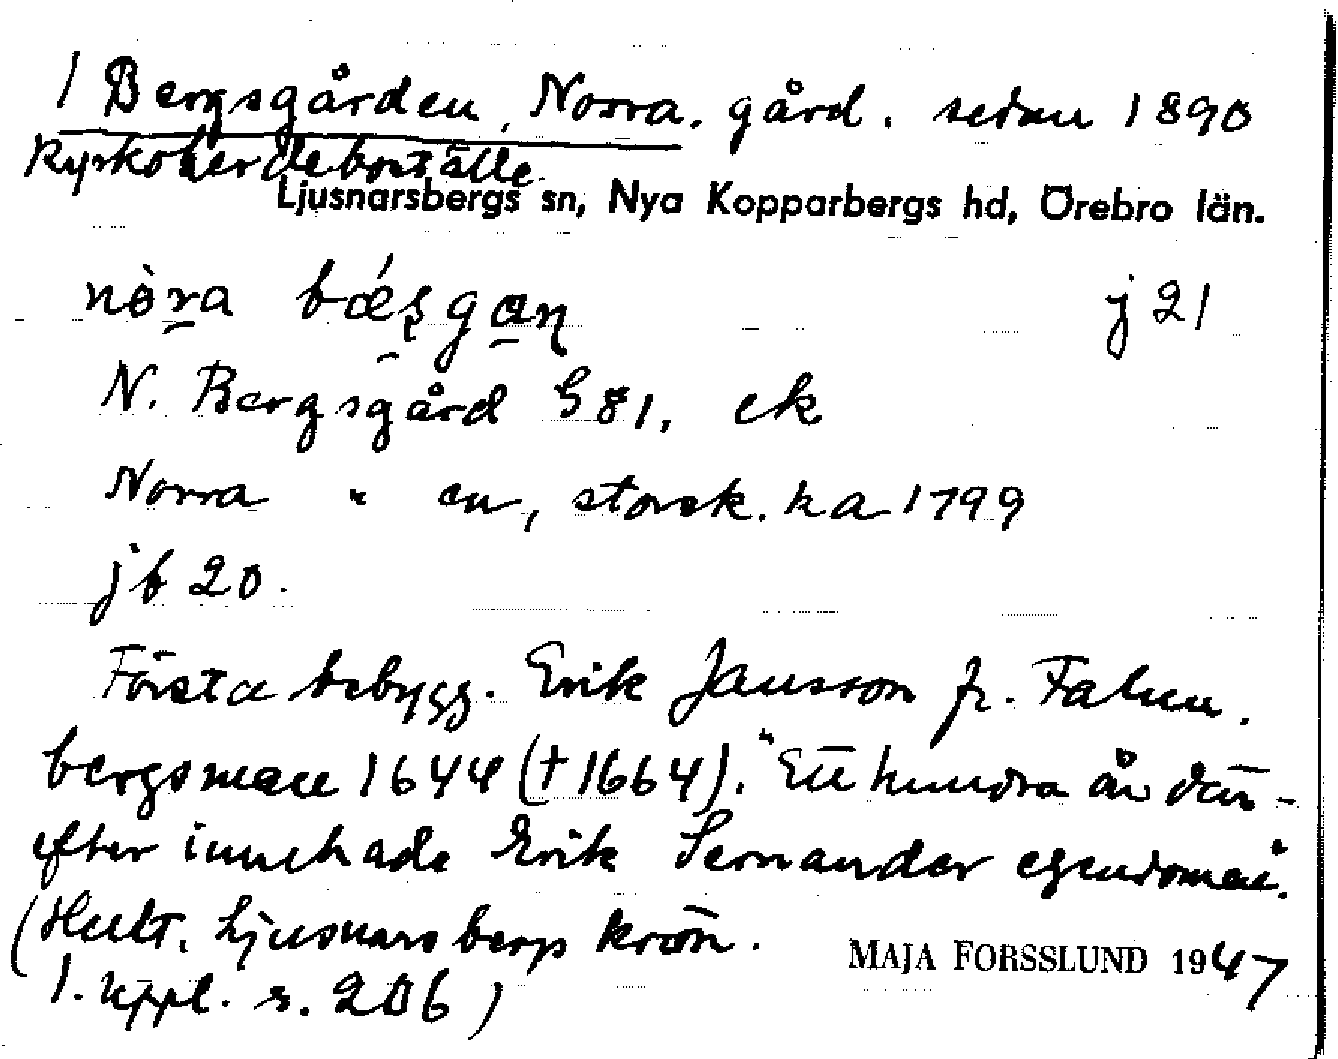 / Bergsgården, Norra. gård. sedan 1890
kyrkoherdeboställe.
Ljusnarsbergs sn, Nya Kopparbergs hd, Örebro län.
nòra bǽşgaɳ j 21
N. Bergsgård G 81, ek
Norra " en, storsk. ka 1799
jb 20.
Första bebygg. Erik Jansson fr. Falun.
bergsman 1644 († 1664). "Ett hundra år där-
efter innehade Erik Sernander egendomen".
(Hult. Ljusnarsbergs krön.
1. uppl. s. 206)
MAJA FORSSLUND 1947